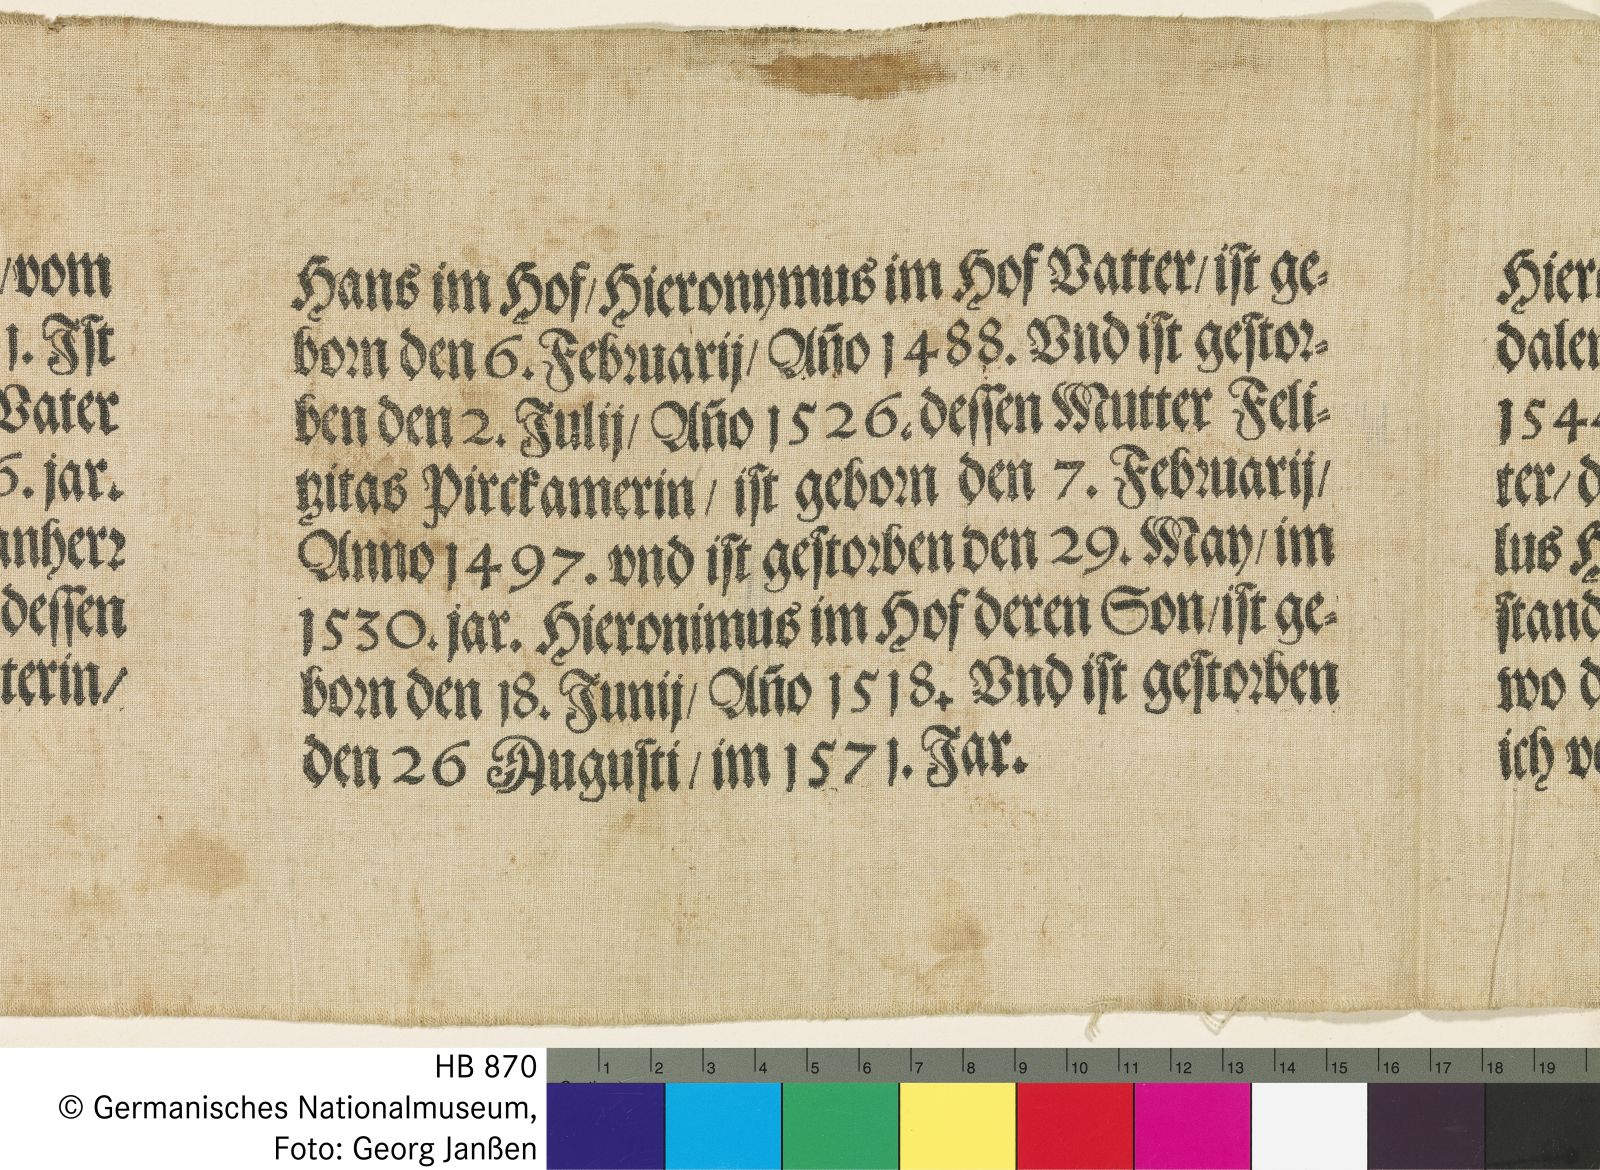 /vom
1. Ist
Vater
6. jar.
anherr
dessen
terin/
Hans im Hof/Hieronymus im Hof Vatter/ist ge-
born den 6. Februarij/ Año 1488. Vnd ist gestor-
ben den 2. Julij/ Año 1526. dessen Mutter Feli-
tzitas Pirckamerin/ ist geborn den 7. Februarij/
Anno 1497. vnd ist gestorben den 29. May/ im
1530. jar. Hieronimus im Hof deren Son/ist ge-
born den 18. Junij/ Año 1518. Vnd ist gestorben
den 26 Augusti/ im 1571. Jar.
Hier
dalen
154
ter/ d
lus H
stand
wo d
ich v
HB 870
© Germanisches Nationalmuseum,
Foto: Georg Janßen
1 2 3 4 5 6 7 8 9 10 11 12 13 14 15 16 17 18 19